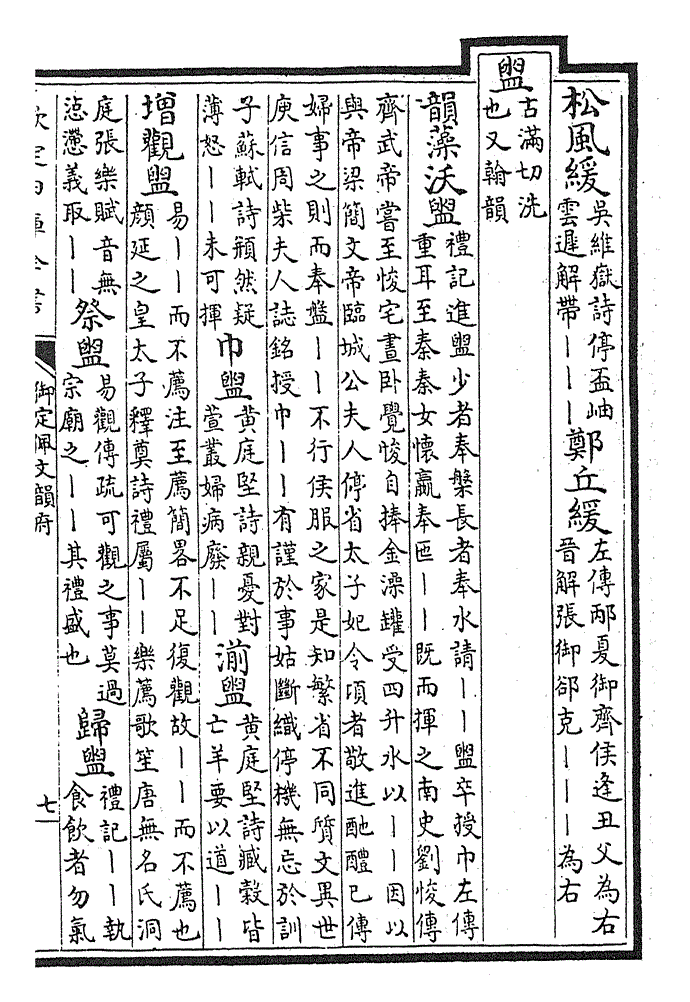 松風緩
吳維嶽詩停盃岫
雲遲解帶丨丨丨
鄭丘緩
左傳邴夏御齊侯逢丑父為右
晉解張御郤克丨丨丨為右
盥
古滿切洗
也又翰韻
韻藻沃盥
禮記進盥少者奉槃長者奉水請丨丨盥卒授巾左傳
重耳至秦秦女懷嬴奉匜丨丨既而揮之南史劉悛傳
齊武帝嘗至悛宅晝卧覺悛自捧金澡罐受四升水以丨丨因以
與帝梁簡文帝臨城公夫人停省太子妃令頃者敬進酏醴已傳
婦事之則而奉盤丨丨不行侯服之家是知繁省不同質文異世
庾信周柴夫人誌銘授巾丨丨有謹於事姑斷織停機無忘於訓
子蘇軾詩頩然疑
薄怒丨丨未可揮
巾盥
黃庭堅詩親憂對
萱叢婦病廢丨丨
湔盥
黃庭堅詩臧穀皆
亡羊要以道丨丨
增觀盥
易丨丨而不薦注至薦簡畧不足復觀故丨丨而不薦也
顏延之皇太子釋奠詩禮屬丨丨樂薦歌笙唐無名氏洞
庭張樂賦音無
惉懘義取丨丨
祭盥
易觀傳疏可觀之事莫過
宗廟之丨丨其禮盛也
歸盥
禮記丨丨執
食飲者勿氣
欽定四庫全書
御定佩文韻府
七